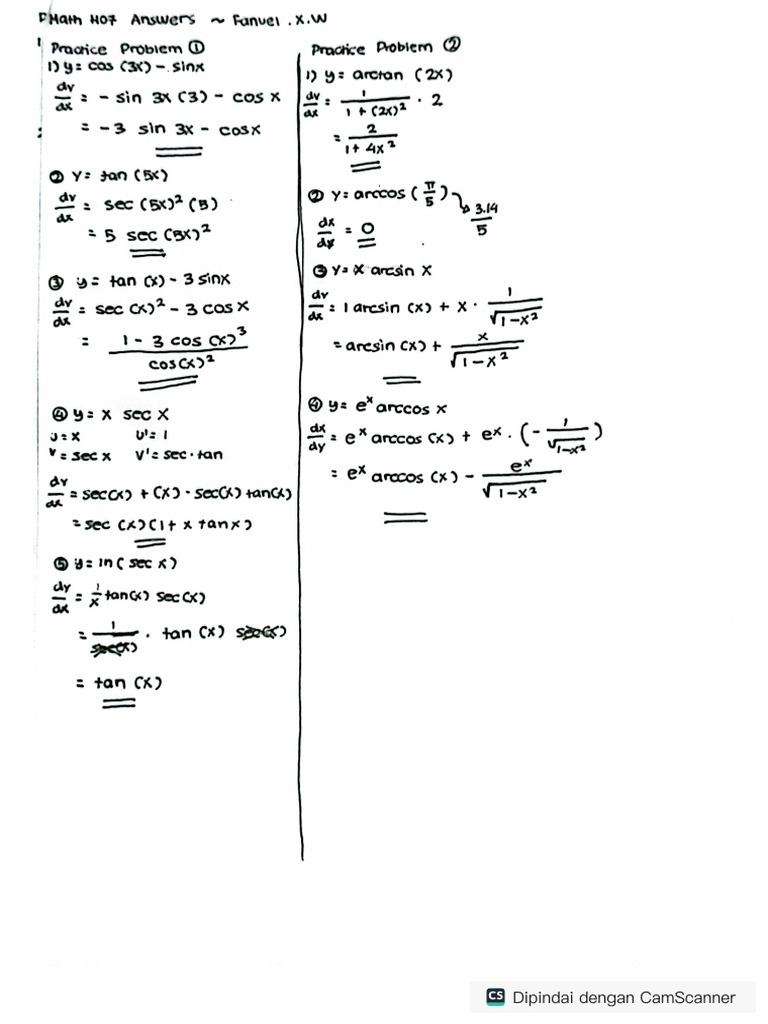 Math H07 Answers ~ Fanuel . X.W
Practice Problem ①
1) y = cos (3x) - sinx
dy/dx = - sin 3x (3) - cos x
= -3 sin 3x - cosx
② y = tan (5x)
dy/dx = sec (5x)² (5)
= 5 sec (5x)²
③ y = tan (x) - 3 sinx
dy/dx = sec (x)² - 3 cos x
= 1 - 3 cos (x)³ / cos(x)²
④ y = x sec x
u = x u' = 1
v = sec x v' = sec · tan
dy/dx = sec(x) + (x) · sec(x) tan(x)
= sec (x) (1 + x tanx)
⑤ y = ln ( sec x)
dy/dx = 1/x tan(x) sec(x)
= 1/sec(x) . tan (x) sec(x)
= tan (x)
Practice Problem ②
1) y = arctan (2x)
dy/dx = 1/1 + (2x)² · 2
= 2/1 + 4x²
② y = arccos (π/5) 3.14/5
dx/dy = 0
③ y = x arcsin x
dy/dx = 1 arcsin (x) + x · 1/√1-x²
= arcsin (x) + x/√1-x²
④ y = eˣ arccos x
dx/dy = eˣ arccos (x) + eˣ . (- 1/√1-x²)
= eˣ arccos (x) - eˣ/√1-x²
CS Dipindai dengan CamScanner